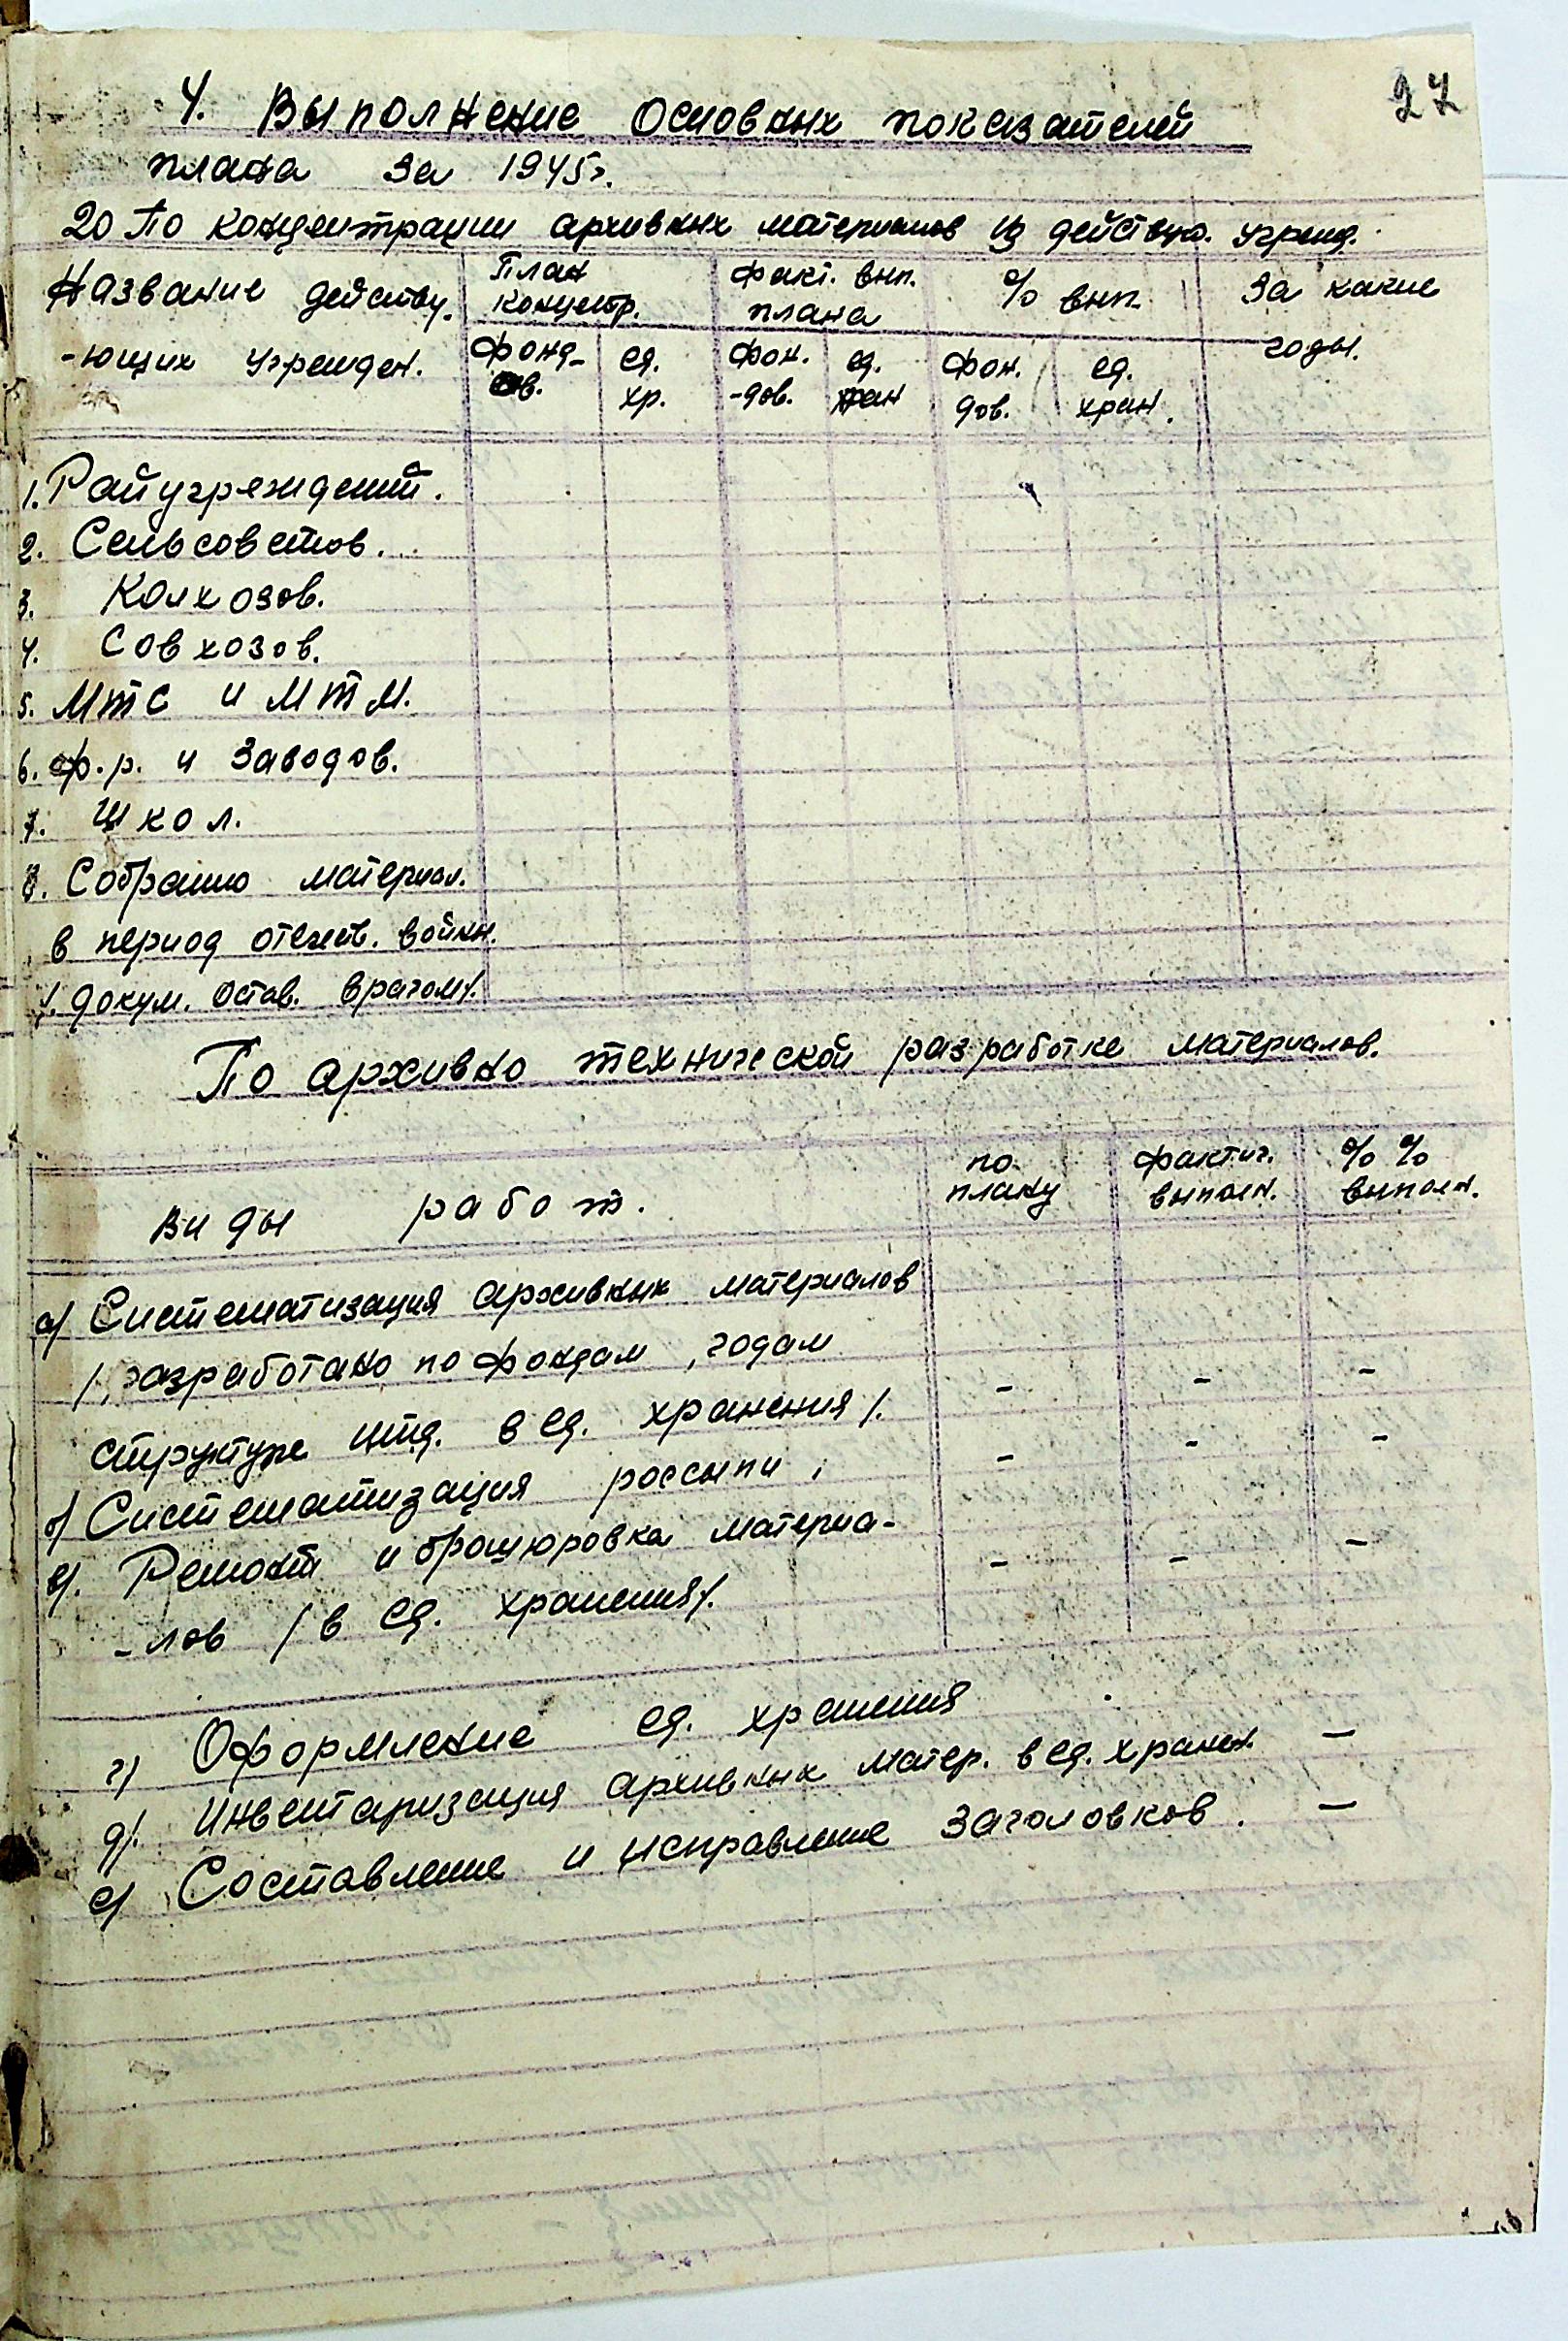 27
4. Выполнение основных показателей
плана за 1945г.
20 По концентрации архивных материалов из действую. учрежд.
Название действу. План концетр. факт. вып. плана % вып. За какие
-ющих учрежден. Фонд-ов. ед. хр. фон. -дов. ед. хран фон. дов. ед. хран. годы.
1. Райучреждений.
2. Сельсоветов.
3. Колхозов.
4. Совхозов.
5. МТС и МТМ.
6. ф.р. и Заводов.
7. Школ.
8. Собранно материал.
в период отечеств. войны.
/. докум. остав. врагом/.
По архивно технической разработке материалов.
Виды работ. по плану фактич. выполн. % % выполн.
а/ Систематизация архивных материалов
/. разработано по фондам, годам - - -
структуре итд. в ед. хранения/.
б/ Систематизация россыпи, - - -
в/. Ремонт и брошюровка материа- - - -
-лов /в ед. хранения/.
г/ Оформление ед. хранения
д/. Инвентаризация архивных матер. в ед. хранен. —
е/ Составление и исправление заголовков. —